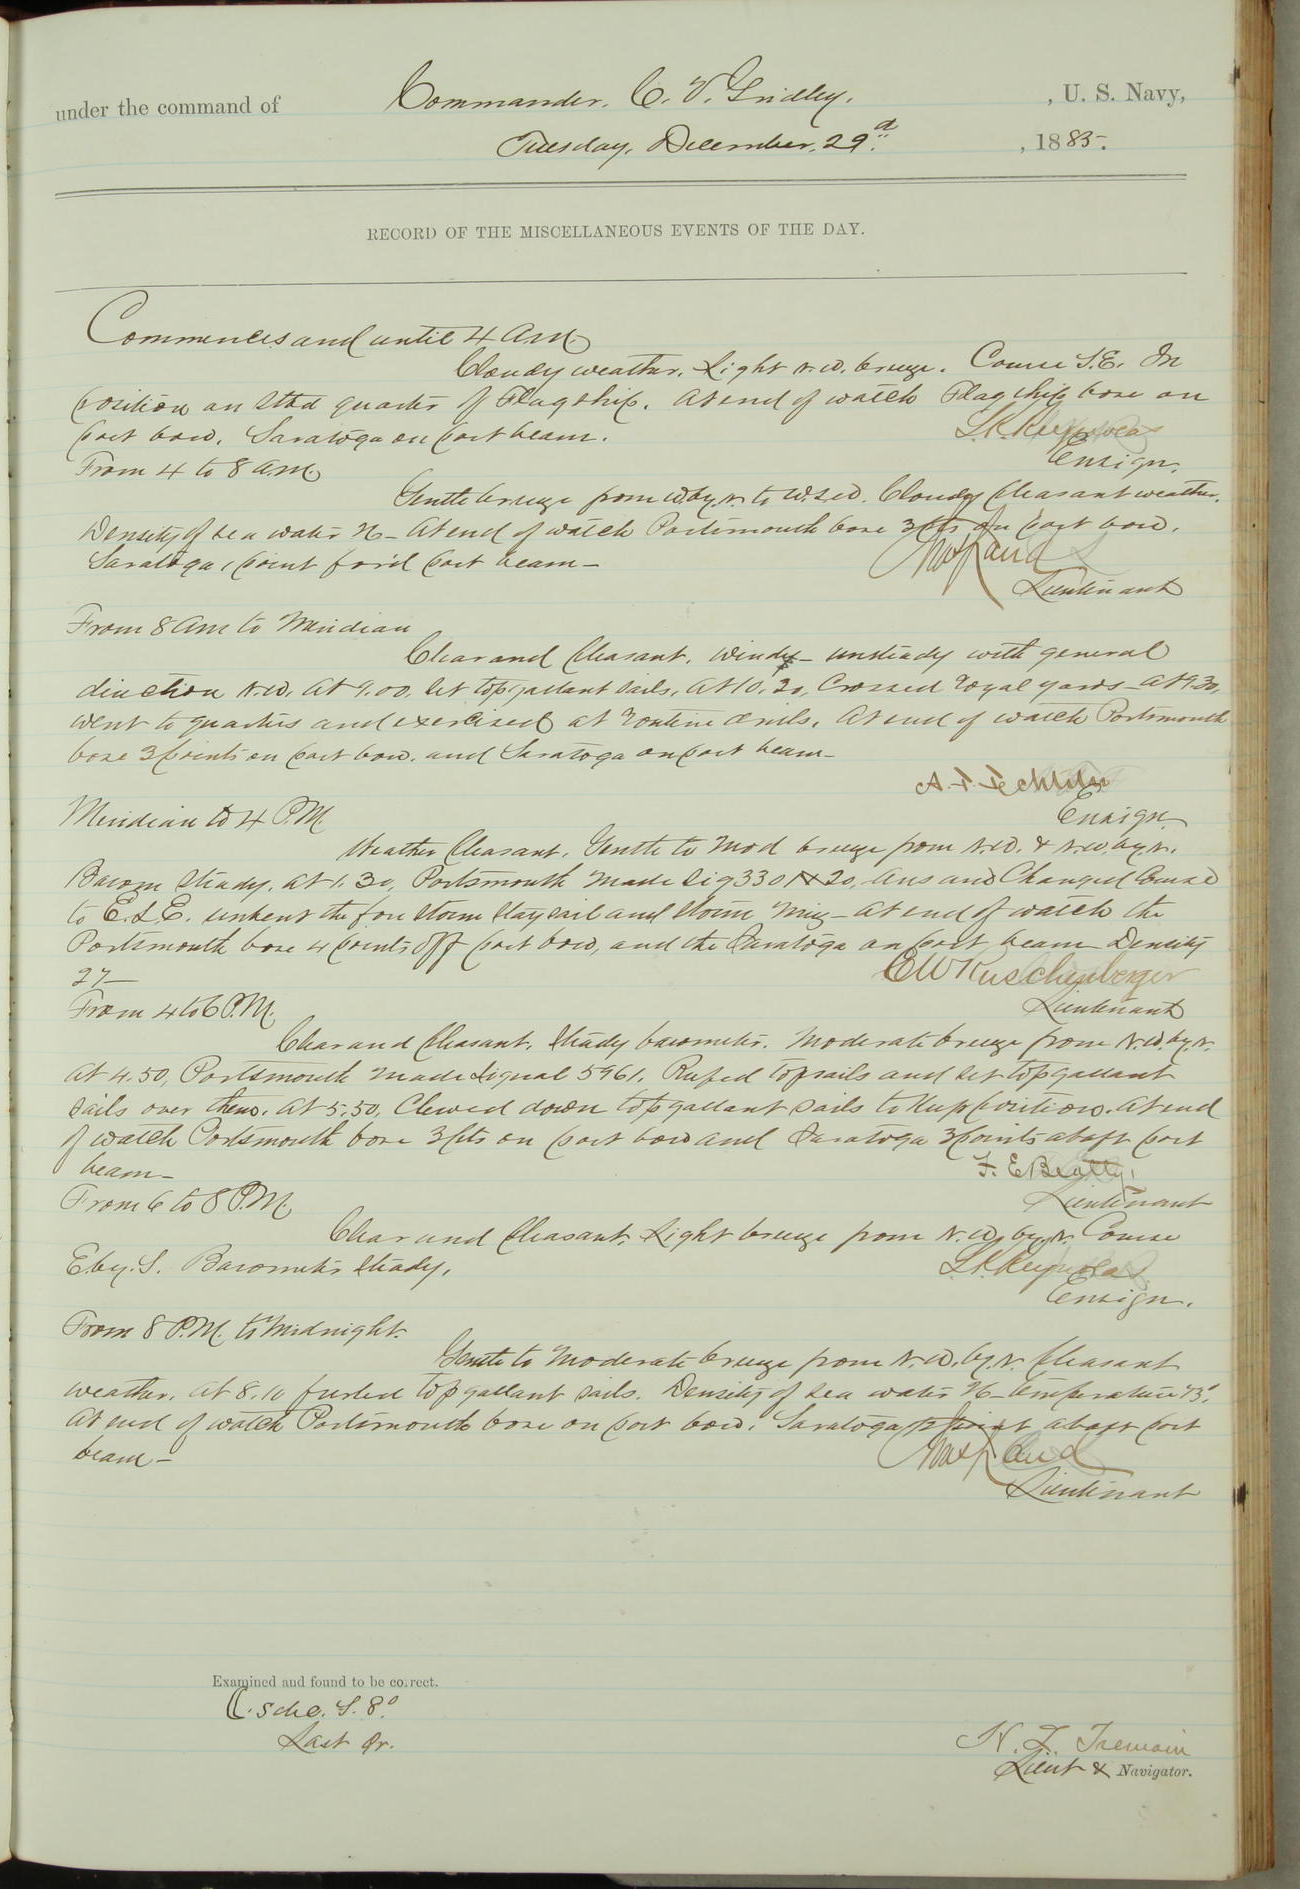 under the command of Commander. C. V. Gridley. , U. S. Navy,
Tuesday, December, 29.d , 1885.
RECORD OF THE MISCELLANEOUS EVENTS OF THE DAY.
Commences and until 4 A.M.
Cloudy weather. Light N.W. breeze. Course S.E. In
position on Stbd quarter of Flagship. At end of watch Flagship bore on
port bow. Saratoga on port beam. L.K. Reynolds
Ensign.
From 4 to 8 a.m.
Gentle breeze from W.by.N. to W.S.W. Cloudy pleasant weather.
Density of sea water 26 - At end of watch Portsmouth bore 3 pts on port bow.
Saratoga 1 point for'd port beam -
Lieutenant
From 8 Am to Meridian
Clear and pleasant. Wind - unsteady with general
direction N.W. At 9.00, set topgallant sails, At 10.20, Crossed royal yards - At 9.30,
went to quarters and exercised at routine drills. At end of watch Portsmouth
bore 3 points on port bow. and Saratoga on port beam -
A. F. Fechteler
Ensign.
Meridian to 4 P.M.
Weather pleasant. Gentle to Mod breeze from N.W. & N.W.by.N.
Barom steady. At 1.30, Portsmouth made sig 330 N 20, Ans and Changed Course
to E.S.E. unbent the fore storm staysail and storm Miz - At end of watch the
Portsmouth bore 4 points off port bow, and the Saratoga on port beam Density
27 - E W Ruschenberger
Lieutenant
From 4 to 6 P.M.
Clear and pleasant. Steady barometer. Moderate breeze from N.W.by.N.
At 4.50, Portsmouth made signal 5961. Reefed topsails and set topgallant
sails over them. At 5.50, Clewed down topgallant sails to keep position. At end
of watch Portsmouth bore 3 pts on port bow and Saratoga 3 points abaft port
beam - F. E Beatty.
Lieutenant
From 6 to 8 P.M.
Clear and pleasant. Light breeze from N.W. by.N. Course
E.by.S. Barometer steady. L.K. Reynolds
Ensign.
From 8 P.M. to Midnight.
Gentle to Moderate breeze from N.W.by.N. pleasant
weather. At 8.10 furled topgallant sails. Density of sea water 26 - temperature 73°.
At end of watch Portsmouth bore on port bow. Saratoga point abaft port
beam -
Lieutenant
Examined and found to be correct.
S. 8°.
Last Qr.
H. L. Tremain
Lieut & Navigator.